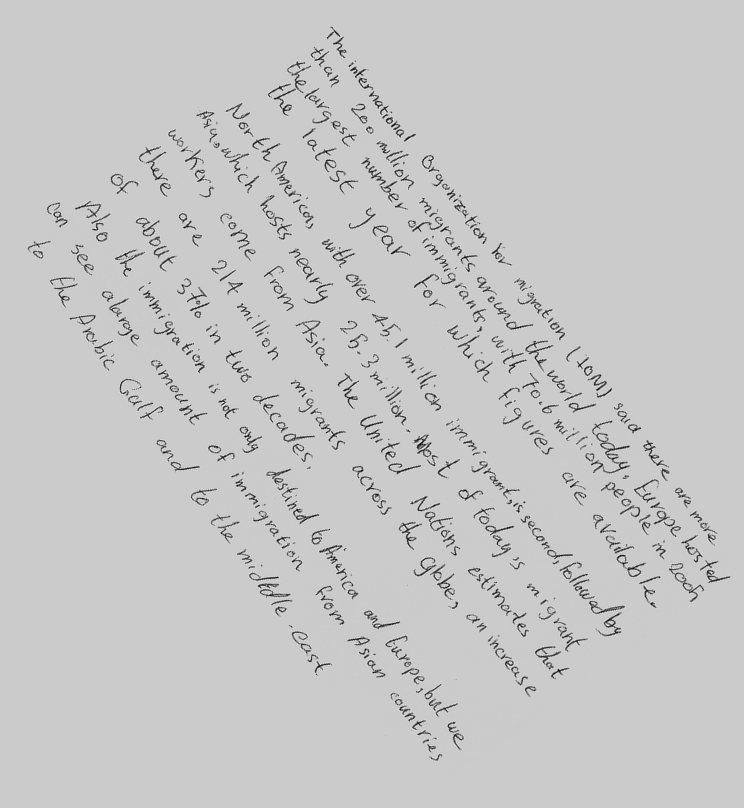 The international Organization for migration (IOM) said there are more
than 200 million migrants around the world today, Europe hosted
the largest number of immigrants, with 70.6 million people in 2005
the latest year for which figures are available.
North America, with over 45.1 million immigrant, is second, followed by
Asia, which hosts nearly 25.3 million. Most of today's migrant
workers come from Asia. The United Nations estimates that
there are 214 million migrants across the globe, an increase
of about 37% in two decades.
Also the immigration is not only destined to America and Europe, but we
can see alarge amount of immigration from Asian countries
to the Arabic Gulf and to the middle-east